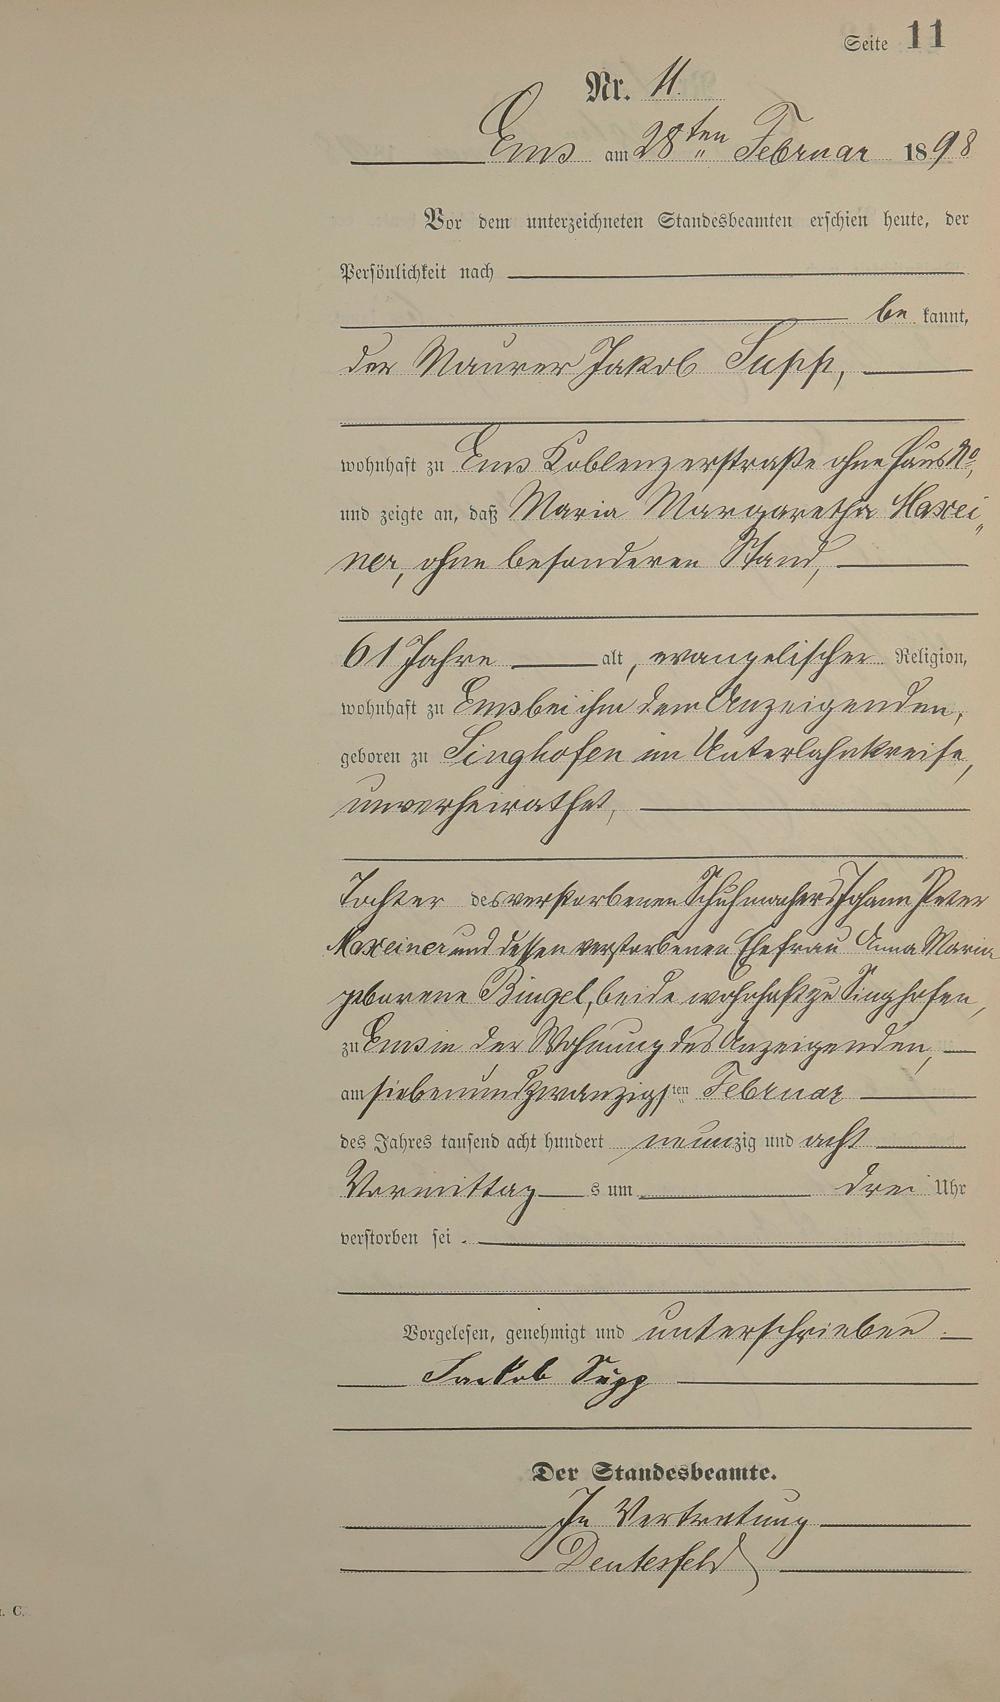 Seite 11
Nr. 11.
Ems am 28ten Februar 1898
Vor dem unterzeichneten Standesbeamten erschien heute, der
Persönlichkeit nach
be kannt,
der Maurer Jakob Supp,
wohnhaft zu Ems Koblenzerstraße ohne Haus No,
und zeigte an, daß Maria Margaretha Maxei„
ner, ohne besonderen Stand,
61 Jahre alt, evangelischer Religion,
wohnhaft zu Ems bei ihm dem Anzeigenden,
geboren zu Singhofen im Unterlahnkreise,
unverheirathet,
Tochter des verstorbenen Schuhmachers Johann Peter
Maxeiner und dessen verstorbenen Ehefrau Anna Maria
geborene Bingel, beide wohnhaft zu Singhofen,
zu Ems in der Wohnung des Anzeigenden,
am siebenundzwanzigsten Februar
des Jahres tausend acht hundert neunzig und acht
Vormittags um drei Uhr
verstorben sei.
Vorgelesen, genehmigt und unterschrieben.
Jackob Supp
Der Standesbeamte.
In Vertretung
Deutesfeld
. C.